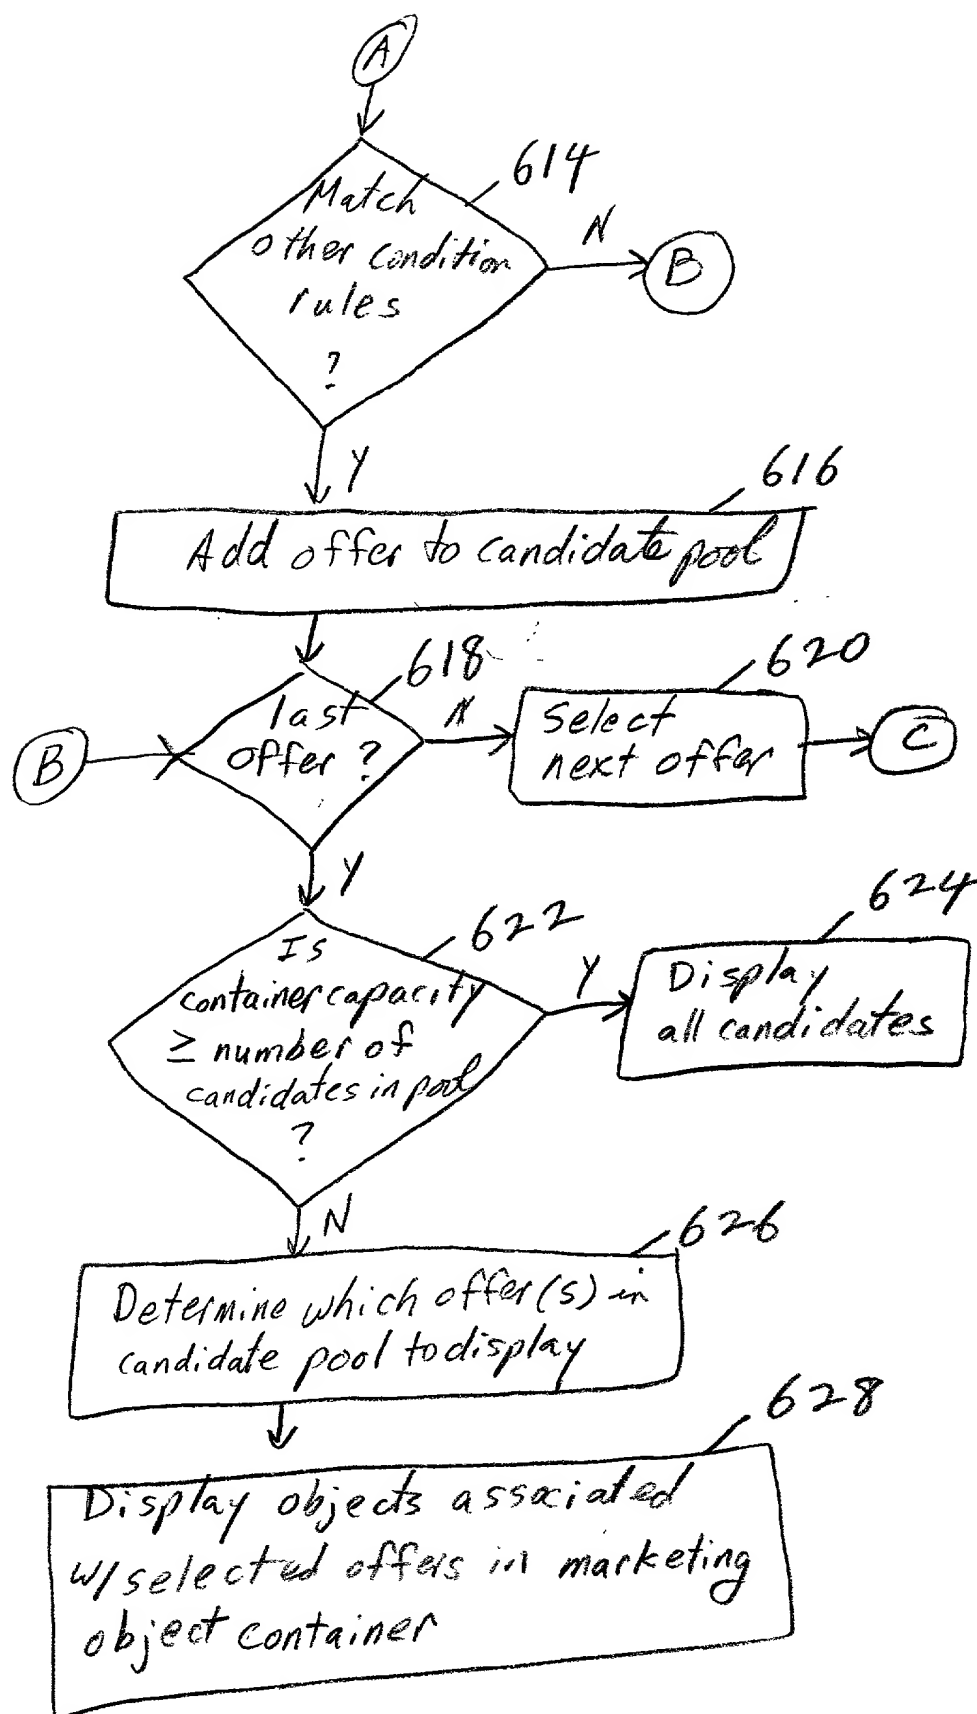 A
614
Match
other condition
rules
?
N
B
Y
616
Add offer to candidate pool
618
last
offer ?
B
N
620
Select
next offer
C
Y
622
Is
container capacity
≥ number of
candidates in pool
?
Y
624
Display
all candidates
N
626
Determine which offer(s) in
candidate pool to display
628
Display objects associated
w/ selected offers in marketing
object container